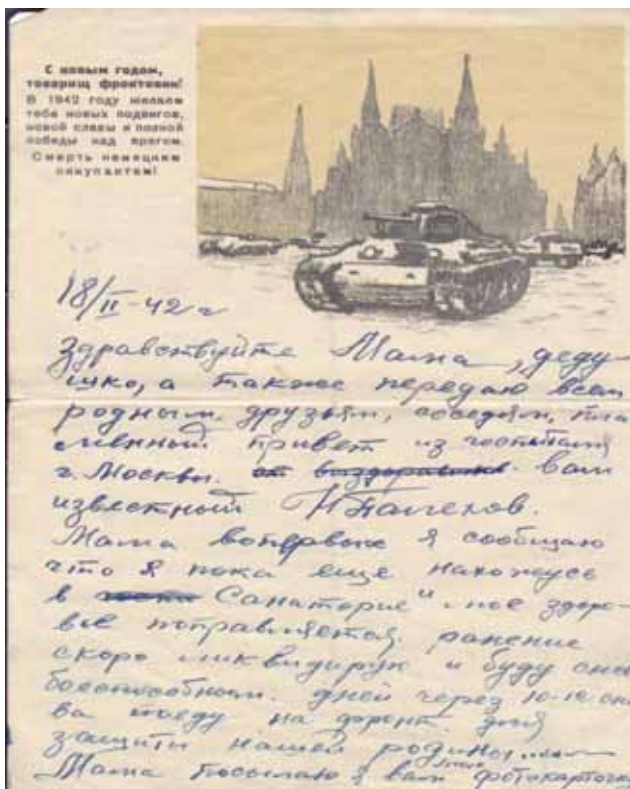 С новым годом,
товарищ фронтовик!
В 1942 году желаем
тебе новых подвигов,
новой славы и полной
победы над врагом.
Смерть немецким
оккупантам!
18/II-42 г
Здравствуйте Мама, деду
шко, а также передаю всем
родным друзьям, соседям, пла
менный привет из госпиталя
г. Москвы. вам
известный
Мама вопервых я сообщаю
что я пока еще нахожусь
в Санаторие" мое здоро-
вье поправляется. ранение
скоро ликвидирую и буду
боеспособным. дней через
ва поеду на фронт. для
защиты нашей родины
Мама посылаю я вам фотокарточку